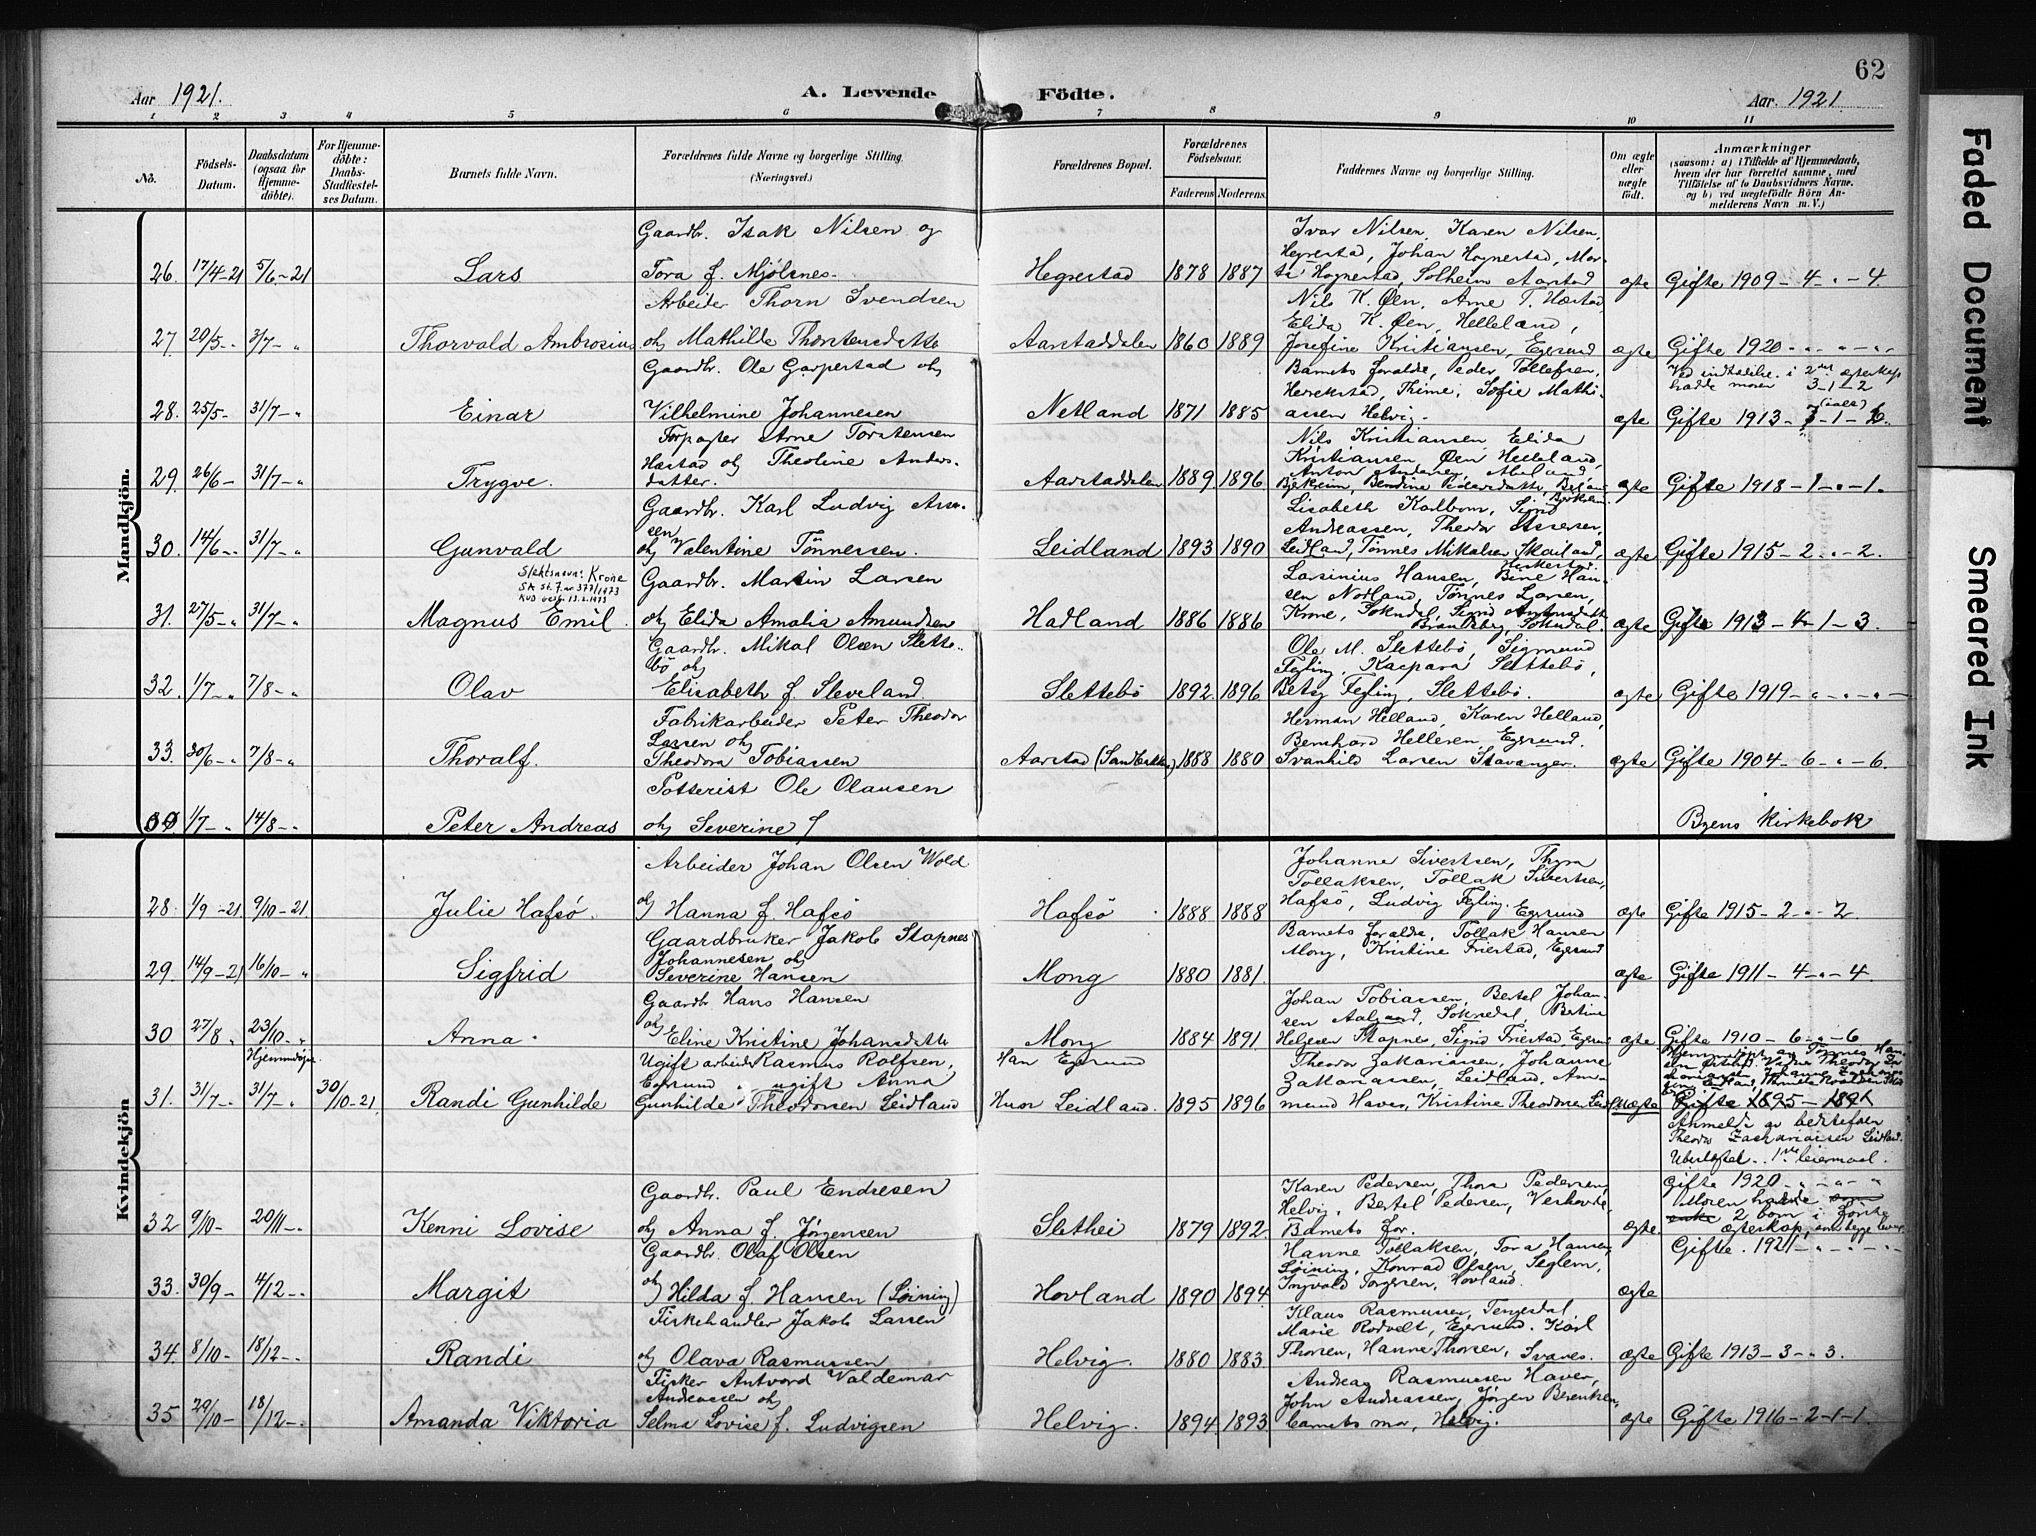 62
Aar 1921.
A. Levende Födte.
Aar. 1921
1 2 3 4 5 6 7 8 9 10 11
No.
Födsels-Datum.
Daabsdatum (ogsaa for Hjemme-döbte).
For Hjemme-döbte: Daabs-Stadfæstelses Datum.
Barnets fulde Navn.
Forældrenes fulde Navne og borgerlige Stilling. (Næringsvei.)
Forældrenes Bopæl.
Forældrenes Födselsaar.
Faderens Moderens
Faddernes Navne og borgerlige Stilling.
Om ægte eller uægte födt.
Anmærkninger
(saasom: a) i Tilfælde af Hjemmedaab,
hvem der har forrettet samme, med
Tilföielse af to Daabsvidners Navne,
og b) ved uægtefödte Börn An-
melderens Navn m. V.)
Mandkjön.
Gaardbr. Isak Nilsen og
Ivar Nilsen, Karen Nilsen,
Hegrestad, Johan Hegrestad, Mar-
26. 17/4-21 5/6-21 Lars Tora f. Mjölsnes. Hegrestad 1878 1887 Hegrestad, Solheim Aarstad ægte Gifte 1909 - 4 - " - 4.
Arbeider Thorn Svendsen
Nils K. Øen, Arne T. Hæstad
Elida K. Øen, Helleland,
27. 20/5- " 3/7- " Thorvald Ambrosius og Mathilde Thorstensdatte Aarstaddalen 1860 1889 Josefine Kristiansen, Egersund ægte Gifte 1920 - " - " - "
Gaardbr. Ole Gaspestad og
Barnets foralde, Peder Tollefsen,
Ved indtædelse i 2det ægteskap
hadde moren 3-1-2
28. 25/5- 31/7- " Einar Vilhelmine Johannesen Netland 1871 1885 assen Helvig. ægte Gifte 1913 -
Forpagter Arne Torstensen
Nils Kristiansen Elida
Hæstad og Theoline Anders-
Kristiansen, Øen Helleland,
29. 26/6- 31/7- " Trygve. datter. Aarstaddalen 1889 1896 Bjerkreim, ægte Gifte 1918 - 1 - " - 1.
Gaardbr. Karl Ludvig Asse-
sen
Lisabeth Karlbom, Sigrid
Andreassen, Theodor Assersen,
30. 14/6- " 31/7- " Gunvald og Valentine Tönnessen. Leidland 1893 1890 Leidland, Tönnes Mikalsen Skailand, ægte Gifte 1915 - 2 - " - 2.
Slektsnavn: Krone
SA st. 7. nr 377/1973
KUD best. 13.2.1973
Gaardbr. Martin Larsen
Larsinius Hansen, Bine Han-
sen Nodland, Tönnes Larsen,
31. 27/5- " 31/7- " Magnus Emil. og Elida Amalia Amundsen Hadland 1886 1886 Krone, Sokndal, Sigrid ægte Gifte 1913 - 4 - 1 - 3.
Gaardbr. Mikal Olsen Slette-
bö og
Ole M. Slettebö, Sigmund
Fegling, Kaspara Slettebö,
32. 1/7- " 7/8- " Olav Elisabeth f. Sleveland. Slettebö 1892 1896 Betsy Fegling, Slettebö. ægte Gifte 1919 - " - " - "
Fabrikarbeider Peter Theodor
Larsen og
Herman Helland, Karen Helland,
Bernhard Helleren Egersund.
33. 30/6- " 7/8- " Thoralf. Theodora Tobiassen Aarstad (Sandbekk) 1888 1880 Svanhild Larsen Stavanger. ægte Gifte 1904 - 6 - " - 6.
Potterist Ole Olausen
1/7- " 14/8- " Peter Andreas og Severine f Byens kirkebok
Kvindekjön
Arbeider Johan Olsen Wold
Johanne Sivertsen, Thyra
Tollaksen, Tollak Sivertsen,
28. 1/9-21 9/10-21 Julie Hafsö. og Hanna f. Hafsö Hafsö 1888 1888 Hafsö, Ludvig Fegling. Egersund ægte Gifte 1915 - 2 - " - 2.
Gaardbruker Jakob Stapnes
Barnets foralde, Tollak Hansen
Johannesen og
Mong, Kristine Friestad, Egersund
29. 14/9-21 16/10- " Sigfrid Severine Hansen Mong 1880 1881. ægte Gifte 1911 - 4 - " - 4.
Gaardbr Hans Hansen
Johan Tobiassen, Bertel Johan-
sen Aalgaard, Sokndal, Bertine
30 27/8 " 23/10- " Anna. og Eline Kristine Johansdatte Mong 1884 1891. Helgesen Stapnes, Sigrid Friestad, Egersun ægte Gifte 1910 - 6 - " - 6
Hjemmedöpt.
Ugift arbeider Rasmus Rolfsen,
Egersund. ugift Anna
Han Egersund
Theodor Zakariassen, Johanne
Zakariassen, Leidland. Am-
31. 31/7- " 31/7- " 30/10-21. Randi Gunhilde Gunhilde Theodorsen Leidland Hun Leidland. 1895 1896 mund Haver, Kristine Theodorsen Leidl. uægte Gifte 1895 - 1891
Anmeldt av bestefaren
Theodor Zachariassen Leidland.
1ste leiermaal.
Gaardbr. Paul Endresen
Karen Pedersen, Thora Pedersen
Helvig, Bertel Pedersen,
Gifte 1920 - " - " - "
Moren hadde
2 barn i förste
ægteskap,
32 9/10- 20/11- " Kenni Lovise og Anna f. Jörgensen Slethei 1879 1892 Barnets for. ægte.
Gaardbr. Olaf Olsen
Hanne Tollaksen, Tora Hansen
Söining, Konrad Olsen, Seglem,
Gifte. 1921 - " - " - "
33. 30/9- 4/12- " Margit og Hilda f. Hansen (Söining) Hovland 1890 1894 Ingvald Torgersen, Hovland. ægte
Fiskehandler Jakob Larsen
Klaus Rasmussen, Tengesdal,
Marie Rodvelt, Egersund. Karl
34. 8/10- 18/12- " Randi og Olava Rasmussen Helvig. 1880 1883 Thorsen, Hanne Thorsen, Svanes. ægte Gifte 1913 - 3 - " - 3.
Fisker Antvord Valdemar
Andreassen og
Andreas Rasmussen Haver,
John Andreassen, Jörgen Berentsen,
35 29/10- 18/12- " Amanda Viktoria Selma Lovise f. Ludvigsen Helvig. 1894 1893 barnets mor, Helvig. ægte Gifte 1916 - 2 - 1 - 1.
Faded Document
Smeared Ink